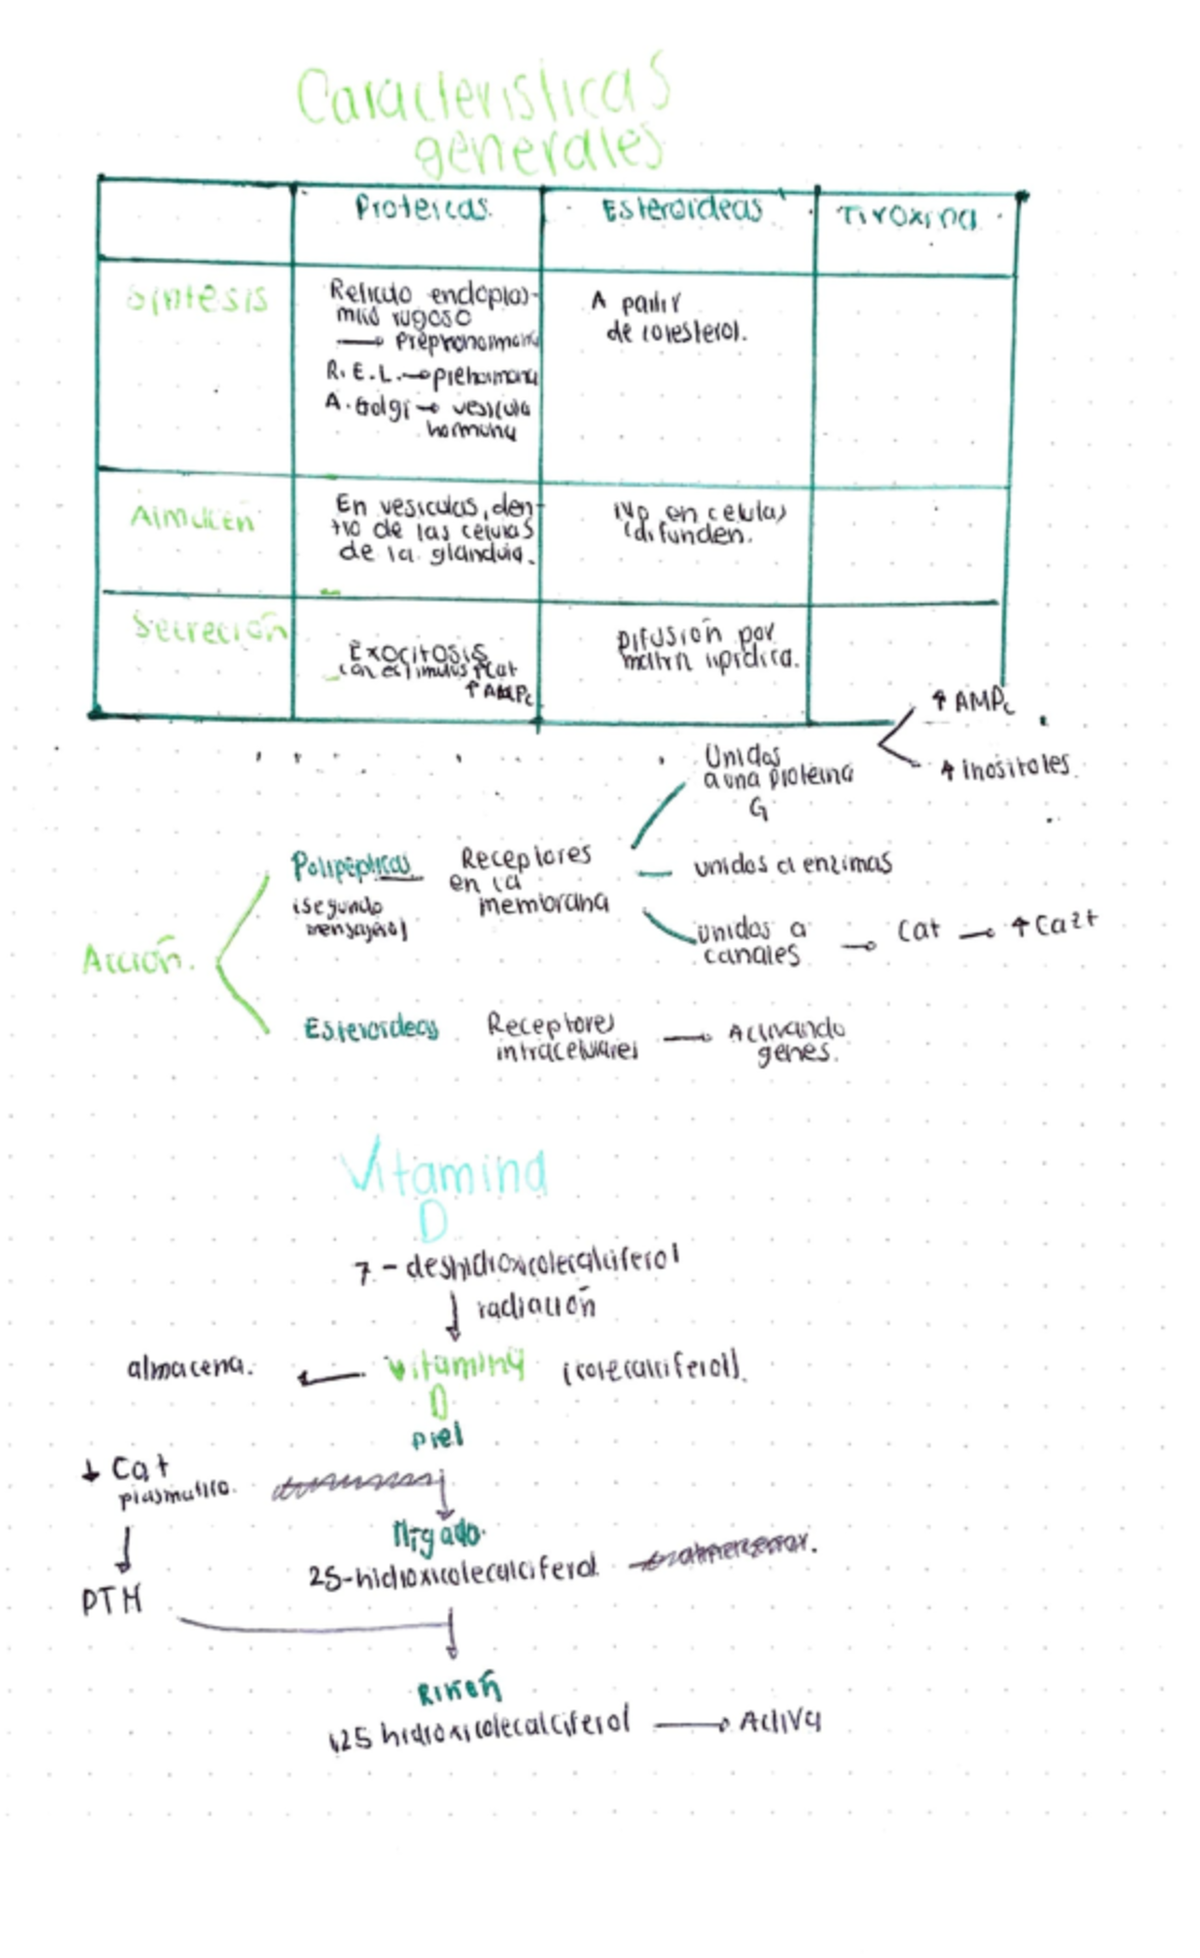 Características
generales
Proteicas.
Esteroideas
Tiroxina
Síntesis
Retículo endoplas-
rugoso
→ Preprohormona
R.E.L. → prehormona
A. Golgi → vesícula
hormona
A partir
de colesterol.
Almacen
En vesículas, den-
tro de las celulas
de la glandula.
No en celulas
(difunden.
Secreción
Exocitosis
con estimulos
↑ AMPc
Difusión por
lipídica.
↑ AMPc
↑ inositoles
Unidos
a una proteina
G
Acción.
Polipepticas
(segundo
mensajero)
Receptores
en la
membrana
unidos a enzimas
unidos a
canales → Cat → ↑ Ca2+
Esteroideas
Receptores
intracelulares → Activando
genes.
Vitamina
D
7-deshidroxicolecalciferol
↓ radiación
almacena. ← Vitamina (colecalciferol).
D
Piel
↓ Cat
plasmatico.
↓
PTH
Higado
25-hidroxicolecalciferol
Riñoñ
125 hidroxicolecalciferol → Activa